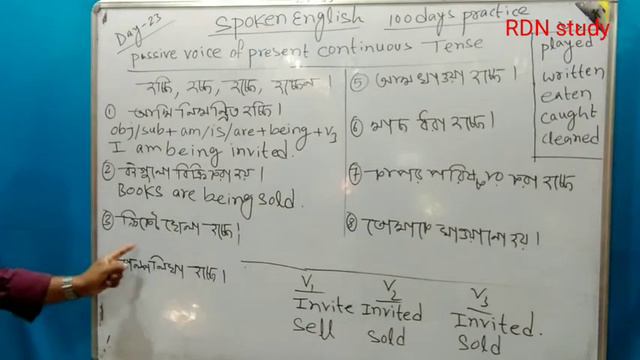 Day-23
Spoken English 100 days practice
RDN study
passive voice of present continuous Tense
হচ্ছি, হচ্ছ, হচ্ছে, হচ্ছেন ।
① আমি নিমন্ত্রিত হচ্ছি ।
obj/sub+am/is/are+being+V3
I am being invited.
② বইগুলো বিক্রি করা হয় ।
Books are being sold.
③ ক্রিকেট খেলা হচ্ছে ।
লিখা হচ্ছে ।
⑤ আম খাওয়া হচ্ছে ।
⑥ মাছ ধরা হচ্ছে ।
⑦ কাপড় পরিষ্কার করা হচ্ছে
⑧ তোমাকে খাওয়ানো হয় ।
played
written
eaten
caught
cleaned
V1 V2 V3
Invite Invited Invited.
Sell Sold Sold